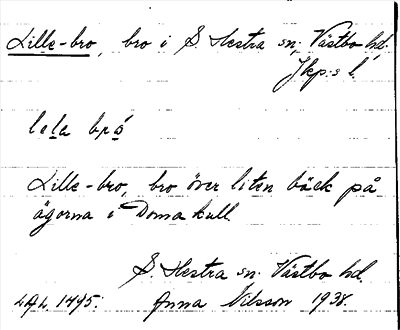 Lille-bro, bro i S. Hestra sn; Västbo hd.
Jkp:s l.
lela bró
Lille-bro, bro över liten bäck på
ägorna i Doma kull.
S. Hestra sn. Västbo hd.
LAL. 1495. Anna Nilsson 1938.